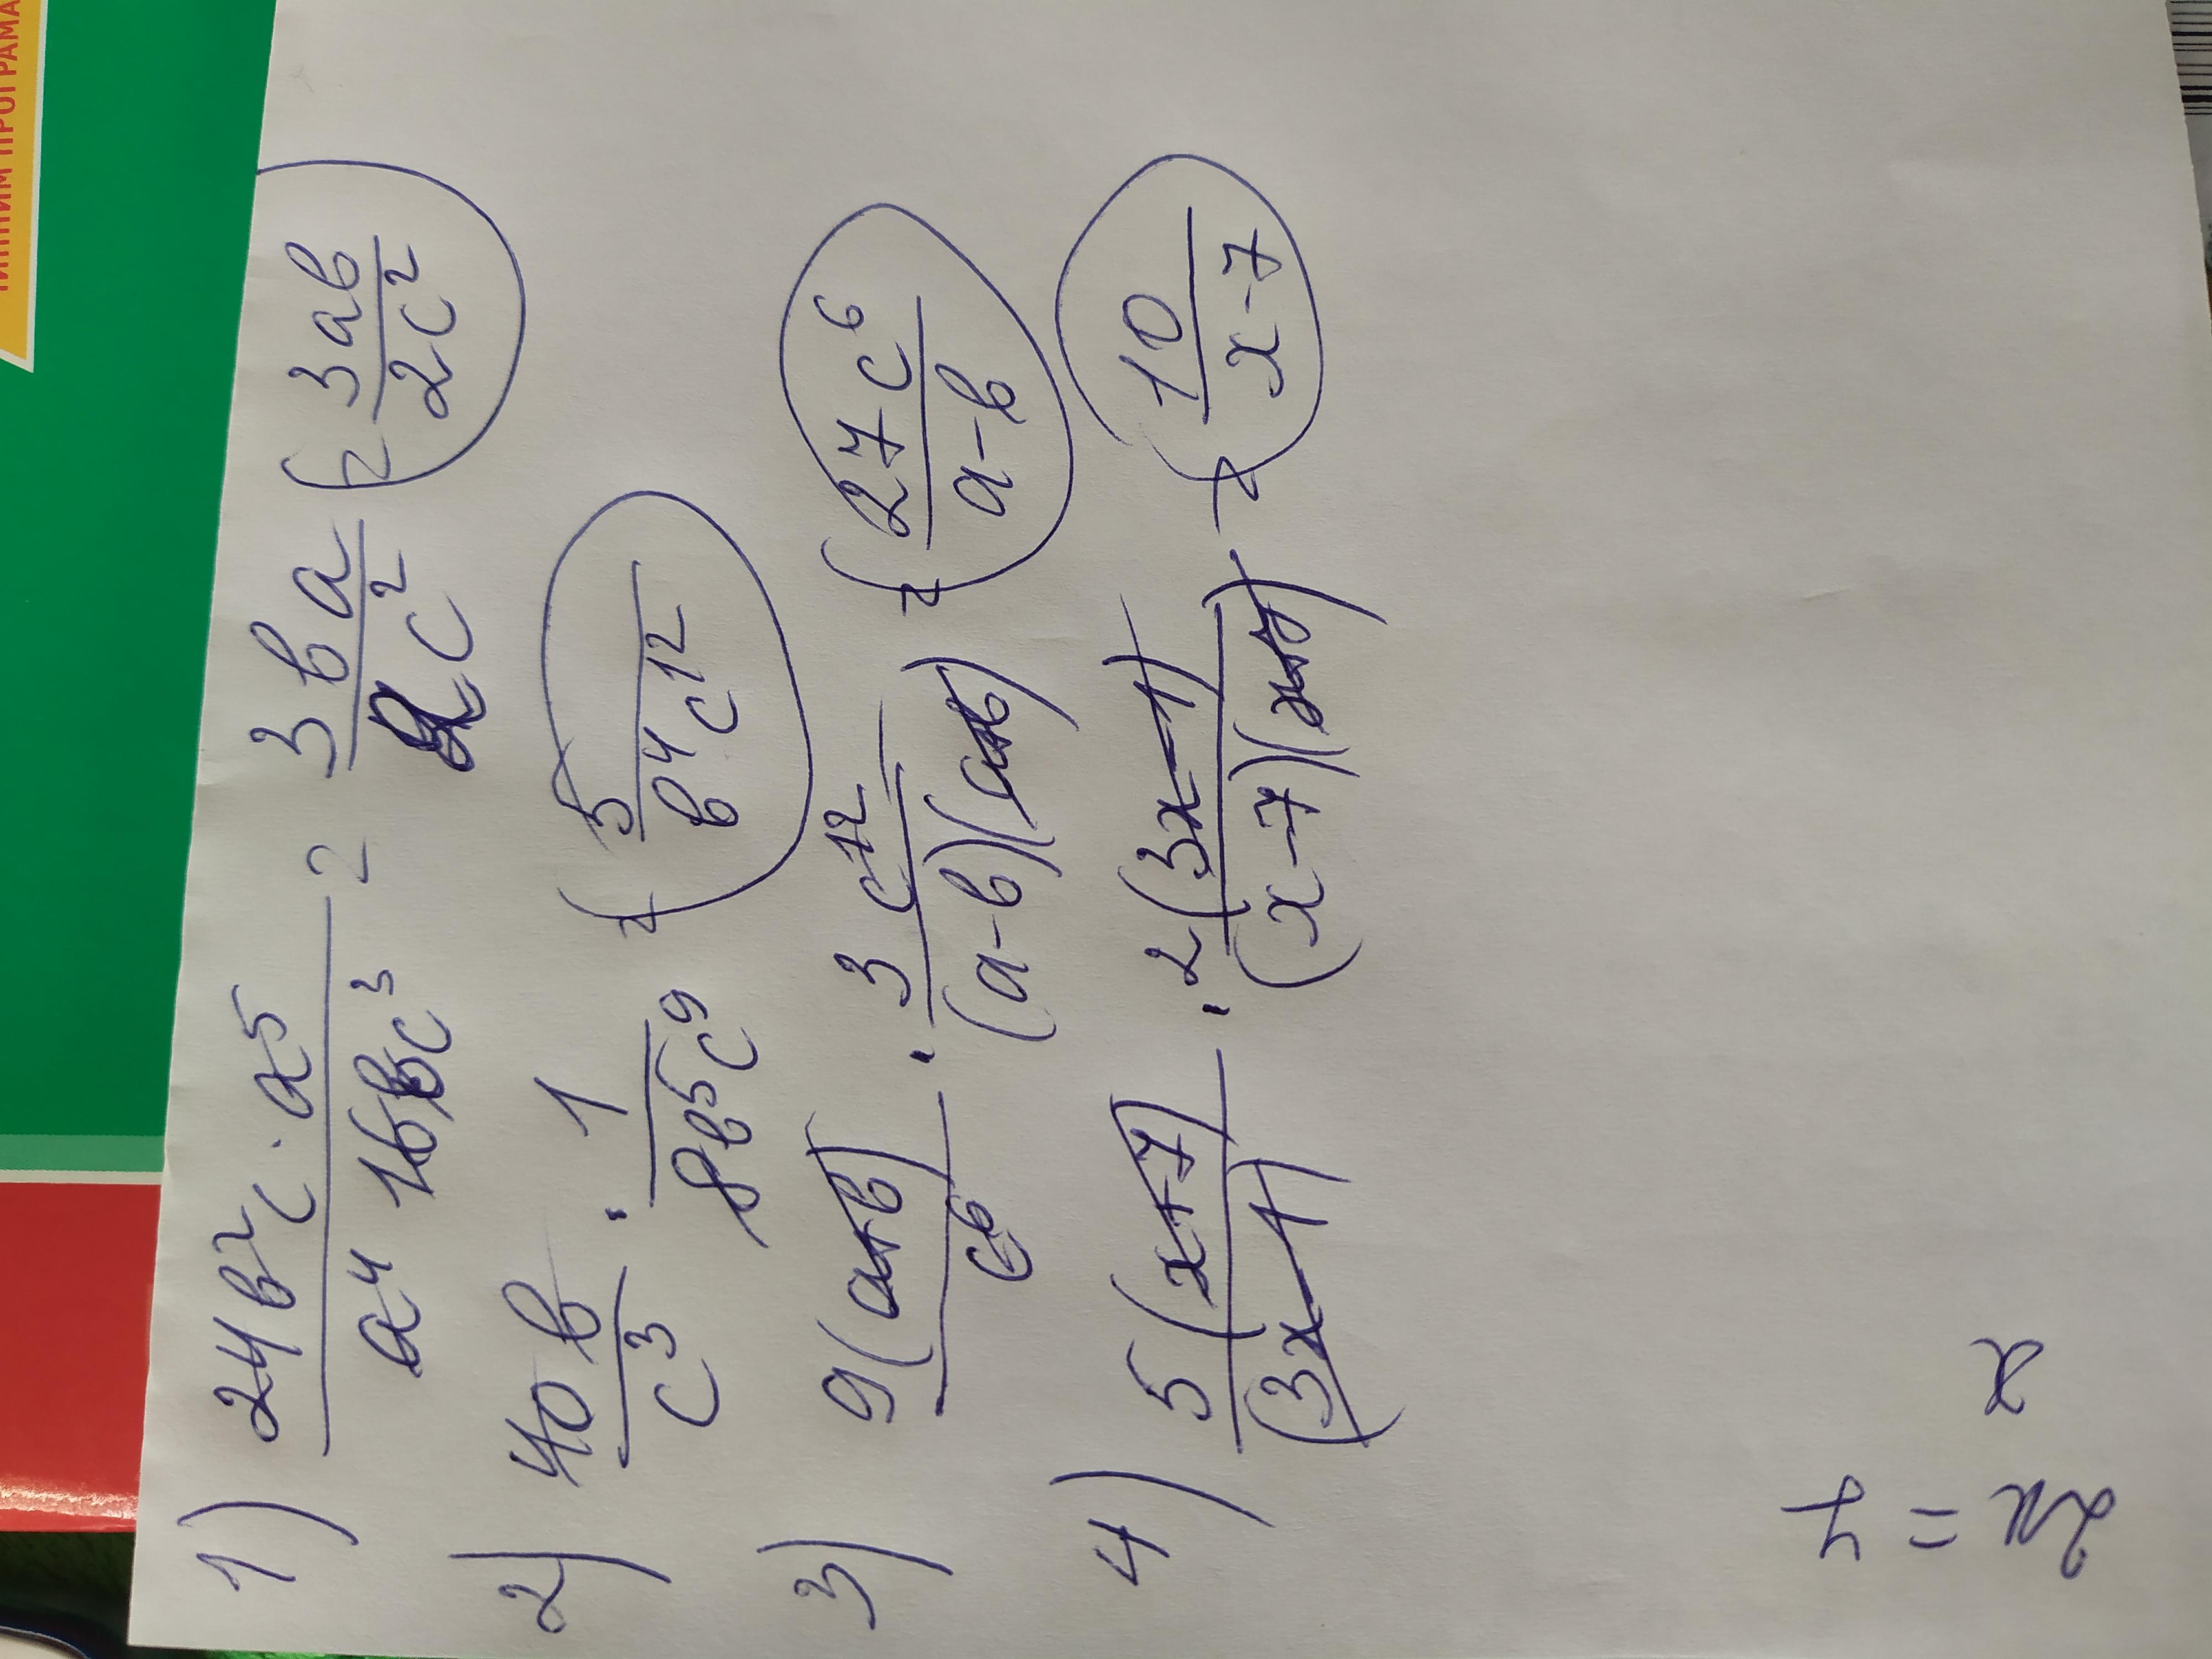 ЧИННИМ ПРОГРАМА
1) 24b²c · a⁵ / a⁴ 16bc³ = 3ba / 2c² = 3ab / 2c²
2) 40b / c³ · 1 / 8b⁵c⁹ = 5 / b⁴c¹²
3) 9(a+b) / c⁶ · 3c¹² / (a-b)(a+b) = 27c⁶ / a-b
4) 5(x+7) / (3x-1) · 2(3x-1) / (x-7)(x+7) = 10 / x-7